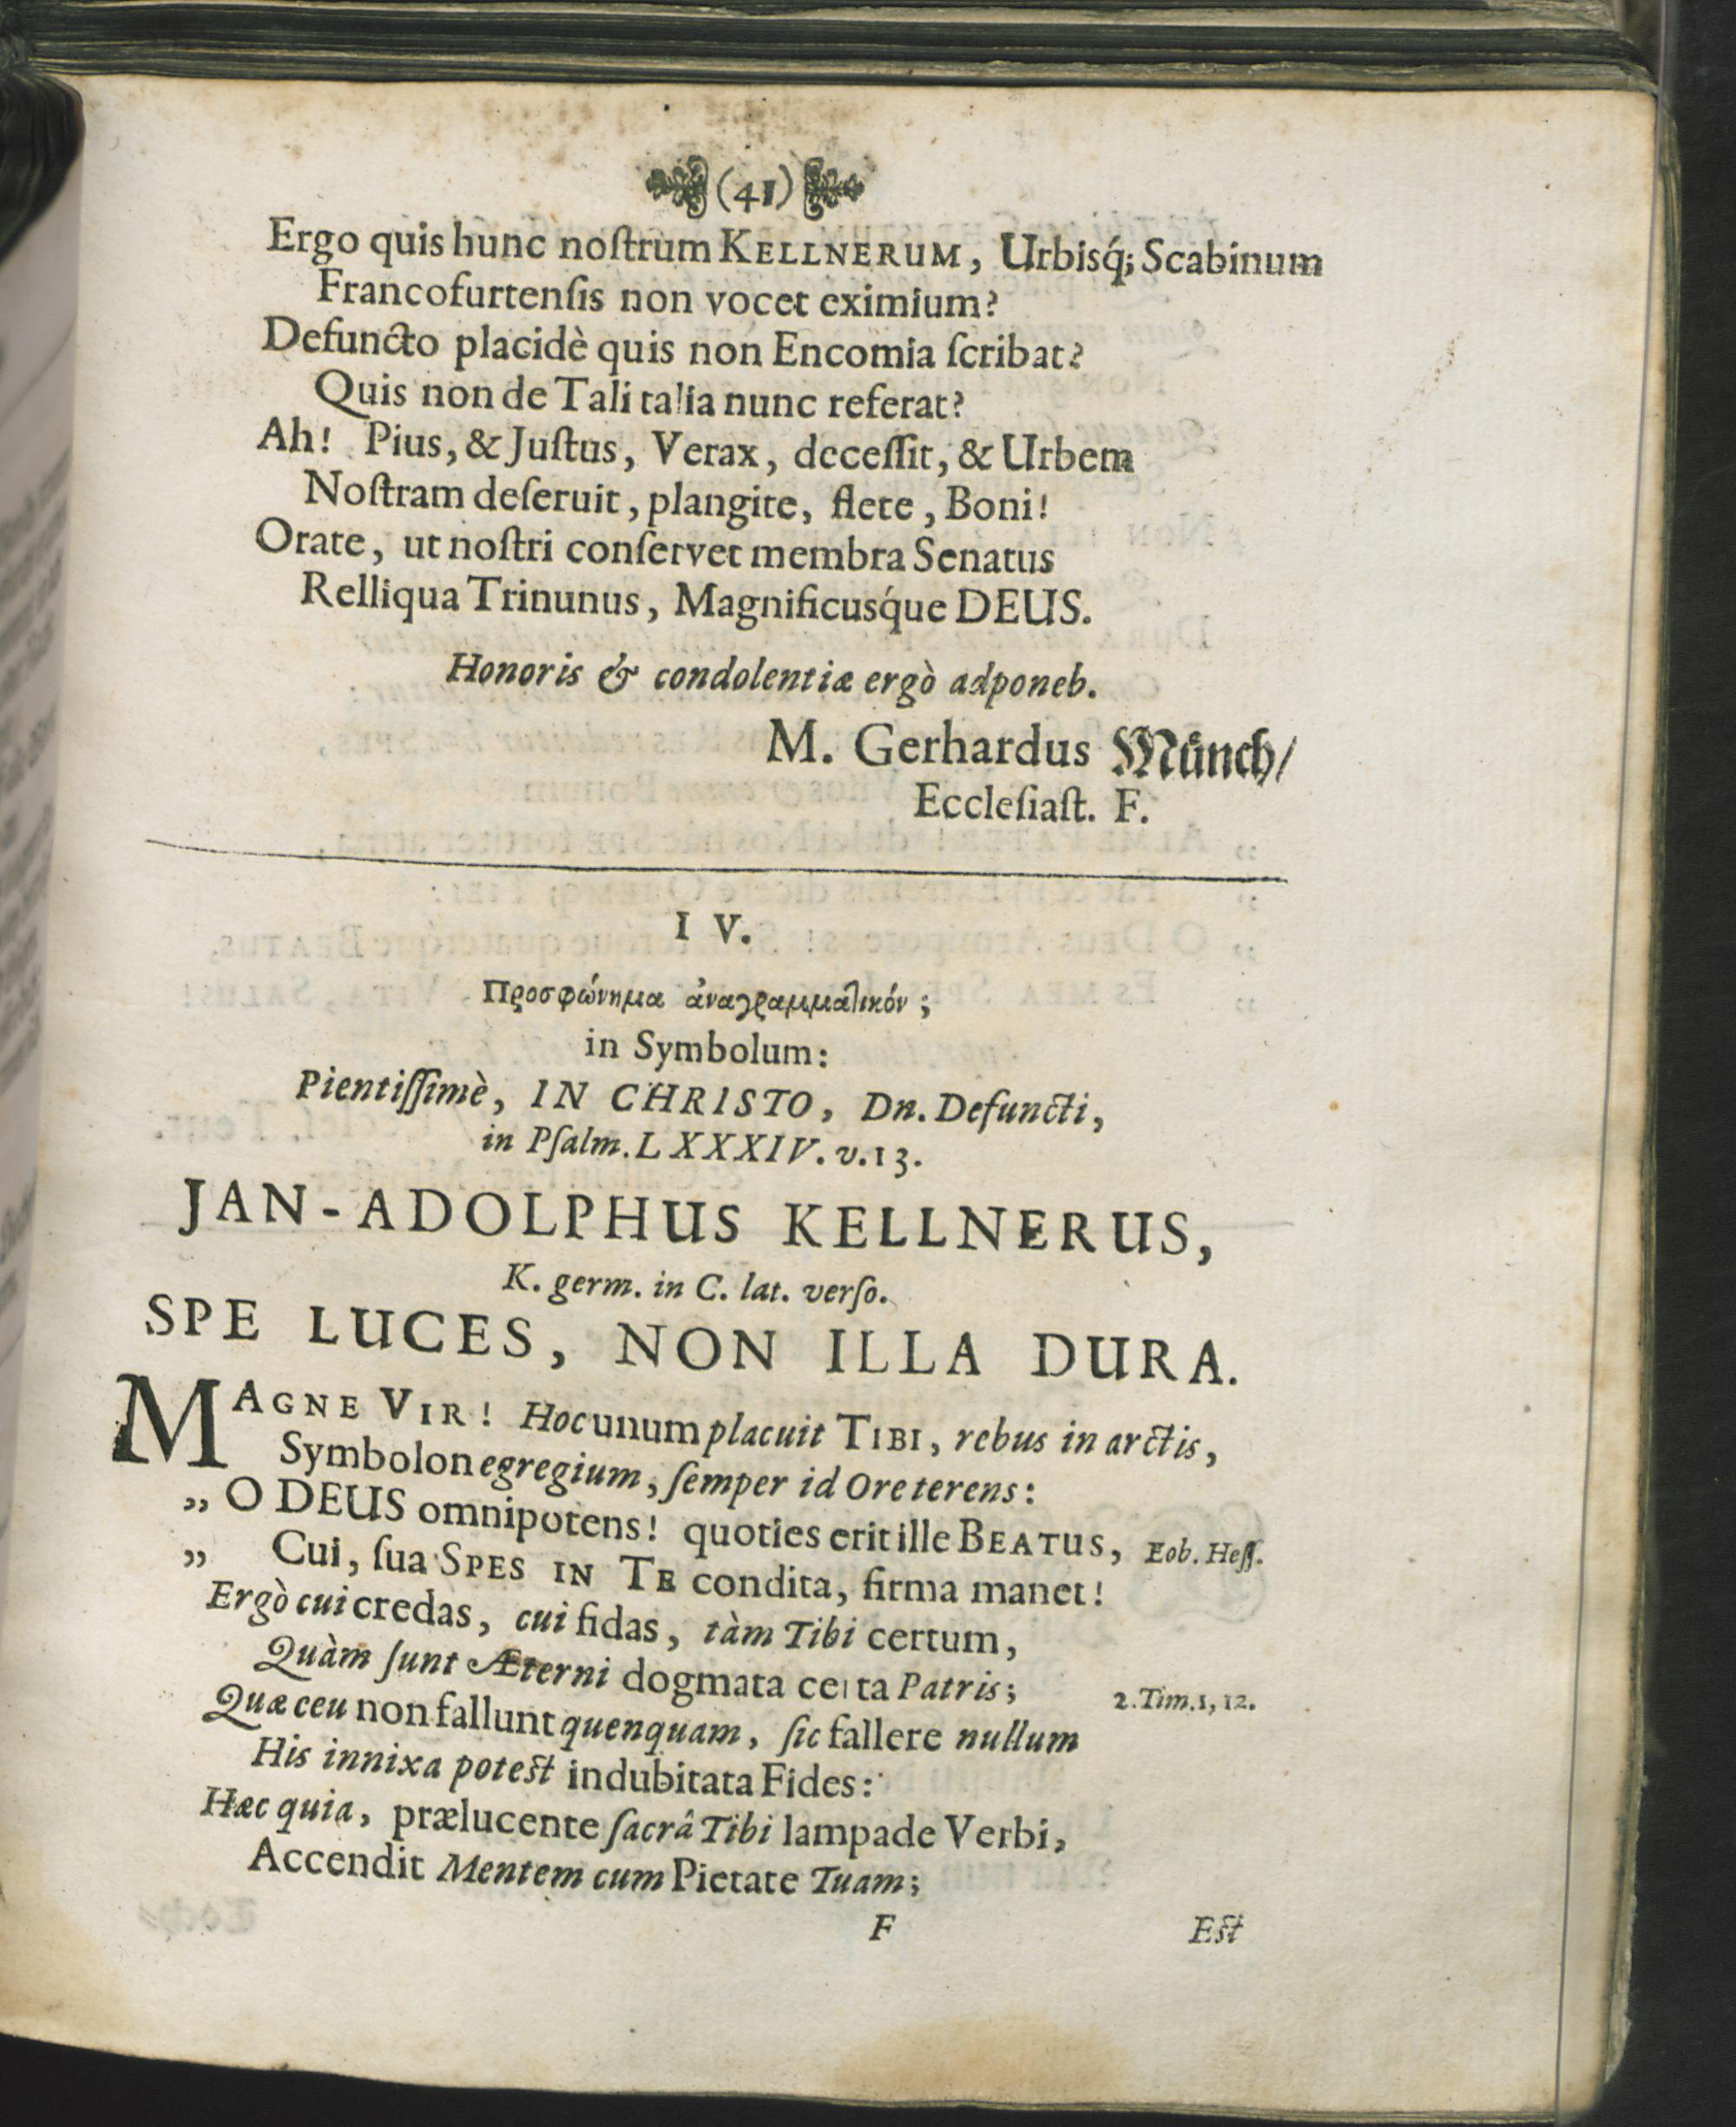 (41)
Ergo quis hunc noſtrum KELLNERUM, Urbisq́; Scabinum
Francofurtenſis non vocet eximium?
Defuncto placidè quis non Encomia ſcribat?
Quis non de Tali talia nunc referat?
Ah! Pius, & Juſtus, Verax, deceſſit, & Urbem
Noſtram deſeruit, plangite, flete, Boni!
Orate, ut noſtri conſervet membra Senatus
Relliqua Trinunus, Magnificusq́ue DEUS.
Honoris & condolentiæ ergò adponeb.
M. Gerhardus Münch/
Eccleſiaſt. F.
IV.
Προσφώνημα ἀναγραμματικόν;
in Symbolum:
Pientiſſimè, IN CHRISTO, Dn. Defuncti,
in Pſalm. LXXXIV. v. 13.
JAN-ADOLPHUS KELLNERUS,
K. germ. in C. lat. verſo.
SPE LUCES, NON ILLA DURA.
MAGNE VIR! Hoc unum placuit TIBI, rebus in arctis,
Symbolon egregium, ſemper id Ore terens:
„ O DEUS omnipotens! quoties erit ille BEATUS, Eob. Heſſ.
„ Cui, ſua SPES IN TE condita, firma manet!
Ergò cui credas, cui fidas, tàm Tibi certum,
Quàm ſunt Æterni dogmata certa Patris; 2. Tim. 1, 12.
Quæ ceu non fallunt quenquam, ſic fallere nullum
His innixa poteſt indubitata Fides:
Hæc quia, prælucente ſacrâ Tibi lampade Verbi,
Accendit Mentem cum Pietate Tuam;
F Eſt